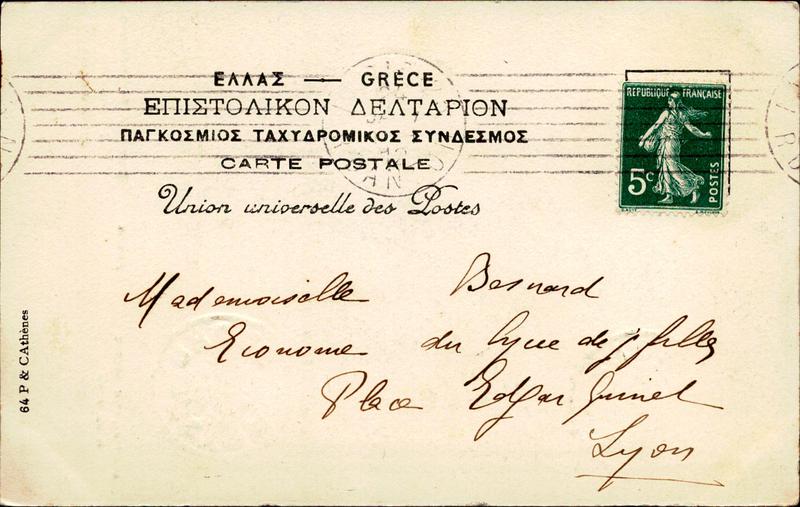 ΕΛΛΑΣ — GRÈCE
ΕΠΙΣΤΟΛΙΚΟΝ ΔΕΛΤΑΡΙΟΝ
ΠΑΓΚΟΣΜΙΟΣ ΤΑΧΥΔΡΟΜΙΚΟΣ ΣΥΝΔΕΣΜΟΣ
CARTE POSTALE
Union universelle des Postes
REPUBLIQUE FRANÇAISE
5c
POSTES
Mademoiselle Besnard
Econome du lycée de j. filles
Place Edgar Quinet
Lyon
64 P & C Athènes